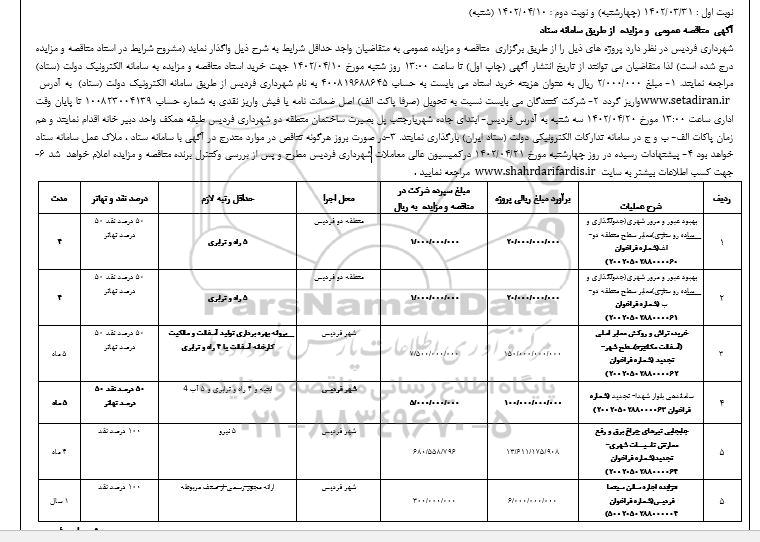 نوبت اول : ۱۴۰۲/۰۳/۳۱ (چهارشنبه) و نوبت دوم : ۱۴۰۲/۰۴/۱۰ (شنبه)
آگهی مناقصه عمومی و مزایده از طریق سامانه ستاد
شهرداری فردیس در نظر دارد پروژه های ذیل را از طریق برگزاری مناقصه و مزایده عمومی به متقاضیان واجد حداقل شرایط به شرح ذیل واگذار نماید (مشروح شرایط در اسناد مناقصه و مزایده
درج شده است) لذا متقاضیان می توانند از تاریخ انتشار آگهی (چاپ اول) تا ساعت ۱۳:۰۰ روز شنبه مورخ ۱۴۰۲/۰۴/۱۰ جهت خرید اسناد مناقصه و مزایده به سامانه الکترونیک دولت (ستاد)
مراجعه نمایند. ۱- مبلغ ۲/۰۰۰/۰۰۰ ریال به عنوان هزینه خرید اسناد می بایست به حساب ۴۰۰۸۱۹۶۸۸۶۴۵ به نام شهرداری فردیس از طریق سامانه الکترونیک دولت (ستاد) به آدرس
www.setadiran.ir واریز گردد ۲- شرکت کنندگان می بایست نسبت به تحویل (صرفا پاکت الف) اصل ضمانت نامه یا فیش واریز نقدی به شماره حساب ۱۰۰۸۲۳۰۰۴۱۳۹ تا پایان وقت
اداری ساعت ۱۳:۰۰ مورخ ۱۴۰۲/۰۴/۲۰ سه شنبه به آدرس فردیس- ابتدای جاده شهریارجنب پل بصیرت ساختمان منطقه دو شهرداری فردیس طبقه همکف واحد دبیر خانه اقدام نمایند و هم
زمان پاکات الف- ب و ج در سامانه تدارکات الکترونیکی دولت (ستاد ایران) بارگذاری نمایند. ۳-در صورت بروز هرگونه تناقص در موارد مندرج در آگهی با سامانه ستاد ، ملاک عمل سامانه ستاد
خواهد بود ۴- پیشنهادات رسیده در روز چهارشنبه مورخ ۱۴۰۲/۰۴/۲۱ درکمیسیون عالی معاملات شهرداری فردیس مطرح و پس از بررسی وکنترل برنده مناقصه و مزایده اعلام خواهد شد ۶-
جهت کسب اطلاعات بیشتر به سایت www.shahrdarifardis.ir مراجعه نمایید .
ردیف شرح عملیات برآورد مبلغ ریالی پروژه مبلغ سپرده شرکت در مناقصه و مزایده به ریال محل اجرا حداقل رتبه لازم درصد نقد و تهاتر مدت
۱ بهبود عبور و مرور شهری(جدولگذاری و پیاده رو سازی)معابر سطح منطقه دو- الف(شماره فراخوان ۲۰۰۲۰۵۰۲۸۸۰۰۰۰۶۰) ۲۰/۰۰۰/۰۰۰/۰۰۰ ۱/۰۰۰/۰۰۰/۰۰۰ منطقه دو فردیس ۵ راه و ترابری ۵۰ درصد نقد ۵۰ درصد تهاتر ۴
۲ بهبود عبور و مرور شهری(جدولگذاری و پیاده رو سازی)معابر سطح منطقه دو- ب (شماره فراخوان ۲۰۰۲۰۵۰۲۸۸۰۰۰۰۶۱) ۲۰/۰۰۰/۰۰۰/۰۰۰ ۱/۰۰۰/۰۰۰/۰۰۰ منطقه دو فردیس ۵ راه و ترابری ۵۰ درصد نقد ۵۰ درصد تهاتر ۴
۳ خرید، تراش و روکش معابر اصلی (آسفالت مکانیزه)سطح شهر- تجدید (شماره فراخوان ۲۰۰۲۰۵۰۲۸۸۰۰۰۰۶۲) ۱۵۰/۰۰۰/۰۰۰/۰۰۰ ۷/۵۰۰/۰۰۰/۰۰۰ شهر فردیس پروانه بهره برداری تولید آسفالت و مالکیت کارخانه آسفالت یا ۴ راه و ترابری ۵۰ درصد نقد ۵۰ درصد تهاتر ۵ ماه
۴ ساماندهی بلوار شهدا- تجدید (شماره فراخوان ۲۰۰۲۰۵۰۲۸۸۰۰۰۰۶۳) ۱۰۰/۰۰۰/۰۰۰/۰۰۰ ۵/۰۰۰/۰۰۰/۰۰۰ شهر فردیس ابنیه و ۴ راه و ترابری و ۵ آب 4 ۵۰ درصد نقد ۵۰ درصد تهاتر ۵ ماه
۵ جابجایی تیرهای چراغ برق و رفع معارض تاسیسات شهری- تجدید(شماره فراخوان ۲۰۰۲۰۵۰۲۸۸۰۰۰۰۶۴) ۱۳/۶۱۱/۱۷۵/۹۰۸ ۶۸۰/۵۵۸/۷۹۶ شهر فردیس ۵ نیرو ۱۰۰ درصد نقد ۴ ماه
۵ مزایده اجاره سالن سینما فردیس(شماره فراخوان ۵۰۰۲۰۵۰۲۸۸۰۰۰۰۰۴) ۶/۰۰۰/۰۰۰/۰۰۰ ۳۰۰/۰۰۰/۰۰۰ شهر فردیس ارائه مجوز رسمی از صنف مربوطه ۱۰۰ درصد نقد ۱ سال
ParsNamadData
پایگاه اطلاع رسانی مناقصه و مزایده
۰۲۱-۸۸۳۴۹۶۷۰-۵